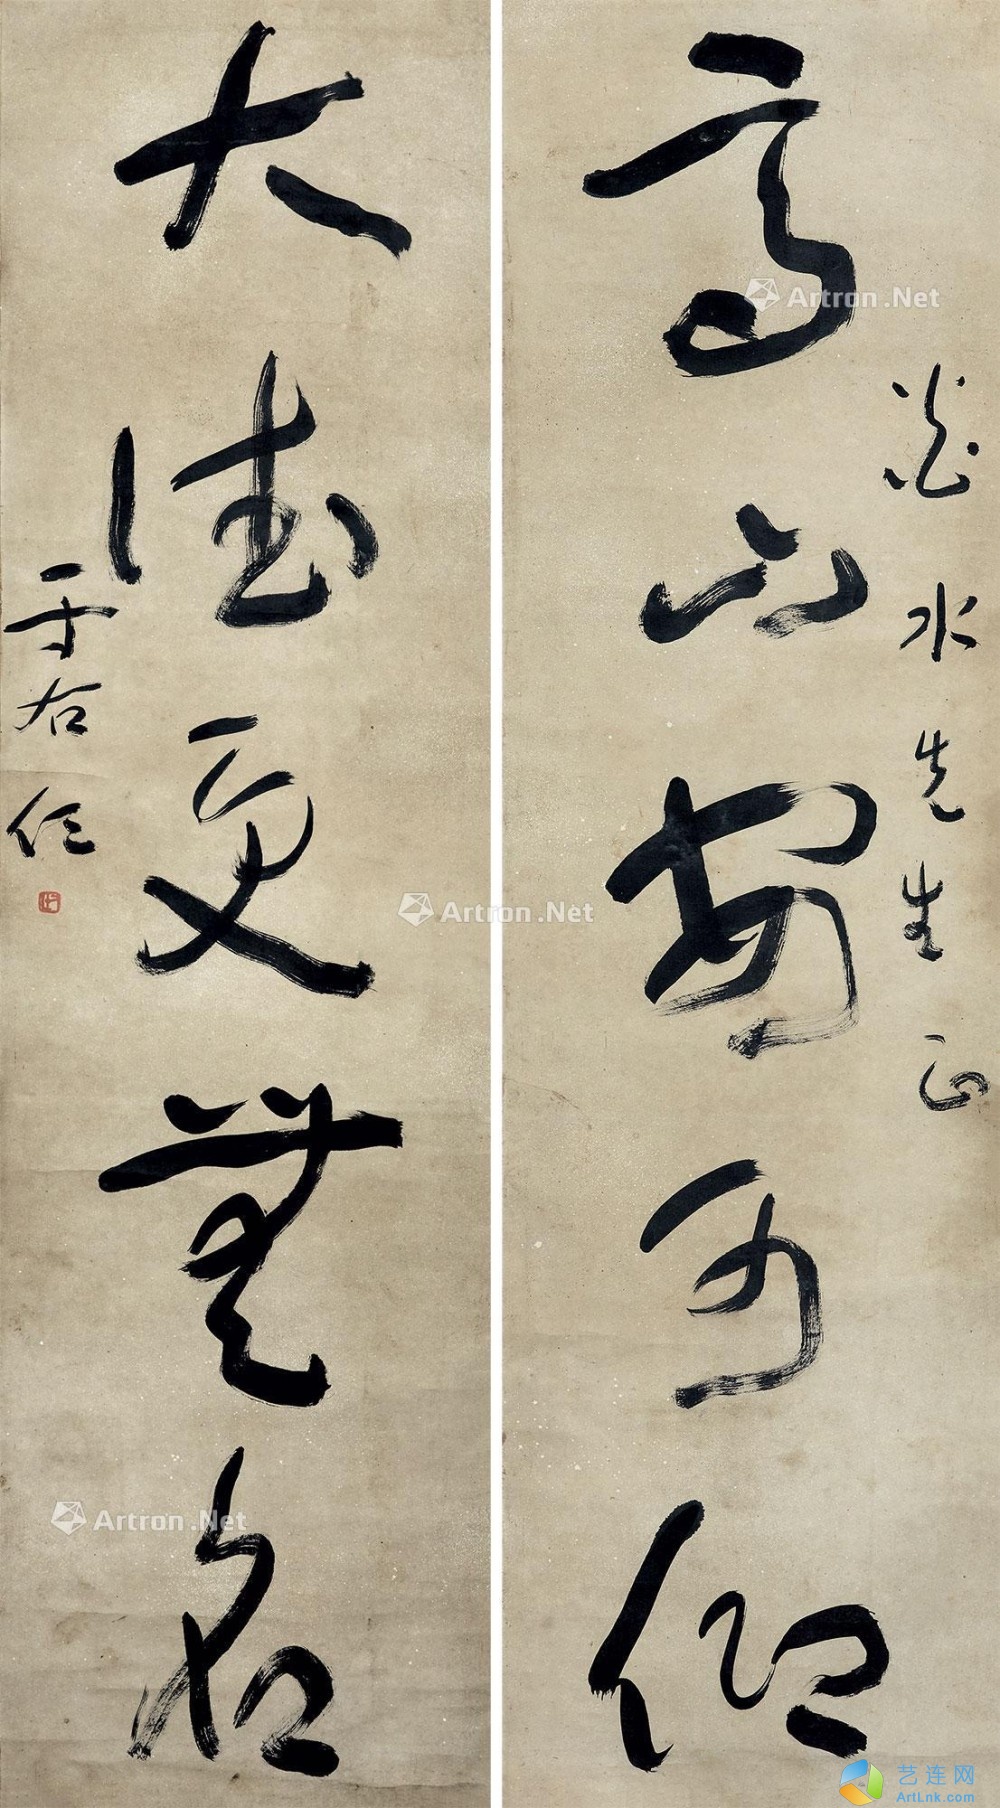 高山安可仰
水先生正
大德更無名
于右任
Artron.Net
Artron.Net
Artron.Net
艺连网
ArtLnk.com